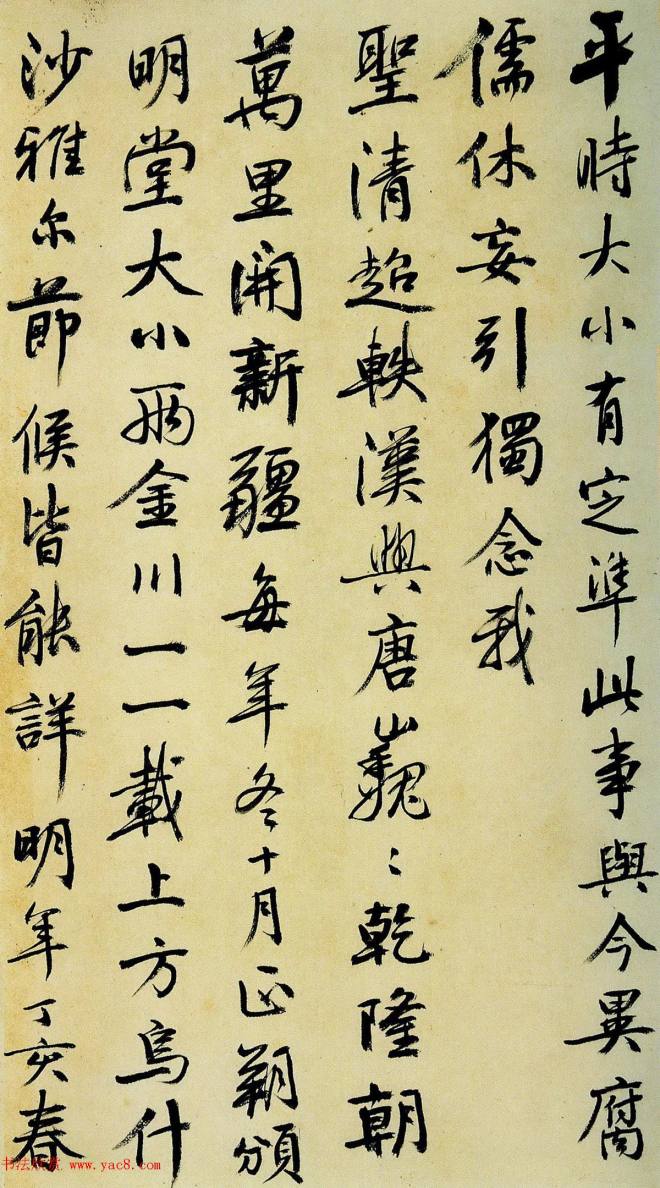 平時大小有定準此事與今異腐
儒休妄引獨念我
聖清超軼漢與唐巍〻乾隆朝
萬里開新疆每年冬十月正朔頒
明堂大小兩金川一一載上方烏什
沙雅尔節候皆能詳明年丁亥春
书法欣赏 www.yac8.com